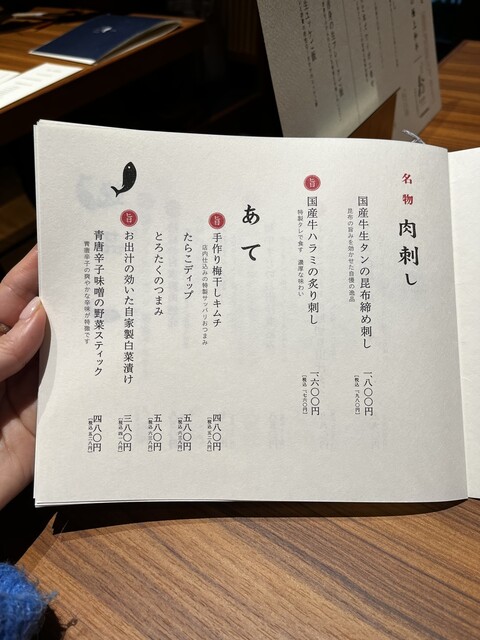 名物 肉刺し
国産牛生タンの昆布締め刺し
昆布の旨みを効かせた自慢の逸品
一、八〇〇円
(税込 一、九八〇円)
旨 国産牛ハラミの炙り刺し
特製タレで食す 濃厚な味わい
一、六〇〇円
(税込 一、七六〇円)
あて
旨 手作り梅干しキムチ
店内仕込みの特製サッパリおつまみ
四八〇円
(税込 五二八円)
たらこディップ
五八〇円
(税込 六三八円)
とろたくのつまみ
五八〇円
(税込 六三八円)
旨 お出汁の効いた自家製白菜漬け
三八〇円
(税込 四一八円)
青唐辛子味噌の野菜スティック
青唐辛子の爽やかな辛味が特徴です
四八〇円
(税込 五二八円)